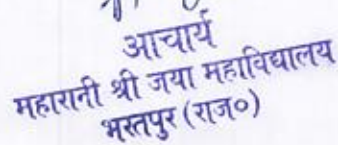 आचार्य
महारानी श्री जया महाविद्यालय
भरतपुर (राज०)